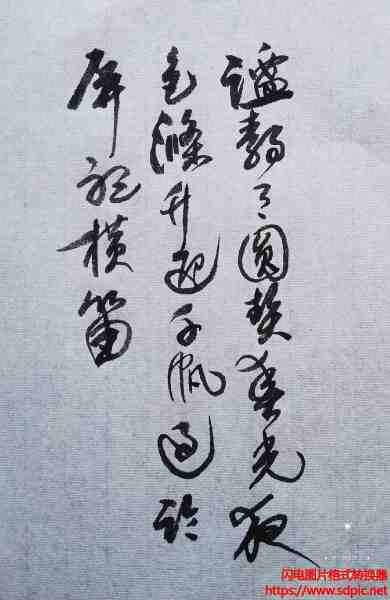 谧静了圆光夜
色涤升起千帆过聆
屏横笛
闪电图片格式转换器
https://www.sdpic.net